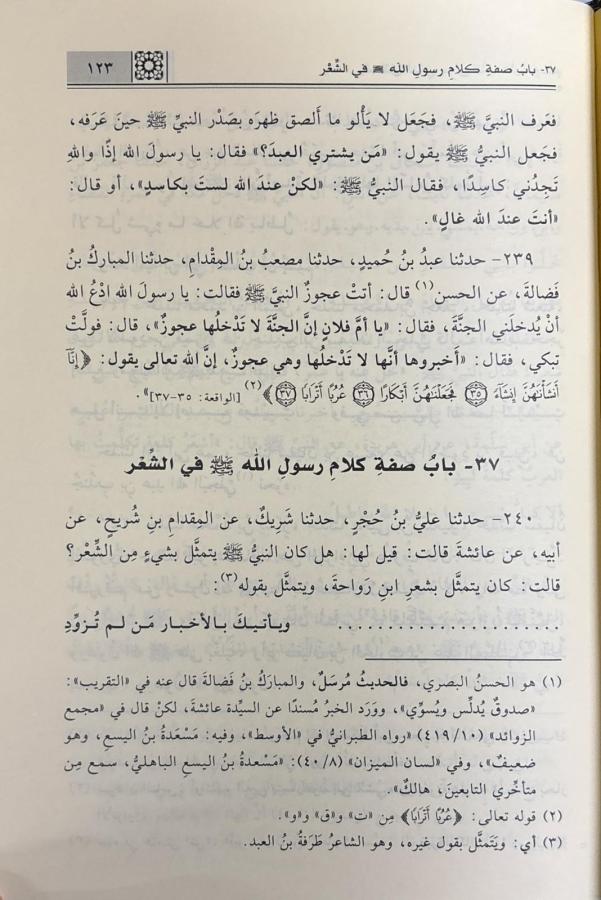 ٣٧- بابُ صفةِ كلامِ رسولِ الله ﷺ في الشِّعْر
١٢٣
فعَرف النبيَّ ﷺ، فجَعل لا يَأْلو ما أَلصق ظهرَه بصَدْر النبيِّ ﷺ حينَ عَرَفه،
فجَعل النبيُّ ﷺ يقول: «مَن يشتري العبدَ؟» فقال: يا رسولَ الله إذًا واللهِ
تَجِدُني كاسِدًا، فقال النبيُّ ﷺ: «لكنْ عندَ الله لستَ بكاسدٍ»، أو قال:
«أنتَ عندَ الله غالٍ».
٢٣٩- حدثنا عبدُ بنُ حُميدٍ، حدثنا مصعبُ بنُ المِقْدامِ، حدثنا المباركُ بنُ
فَضالةَ، عن الحسن(١) قال: أتتْ عجوزٌ النبيَّ ﷺ فقالت: يا رسولَ الله ادْعُ الله
أنْ يُدخلَني الجنَّةَ، فقال: «يا أمَّ فلانٍ إنَّ الجنَّةَ لا تَدْخلُها عجوزٌ»، قال: فولَّتْ
تبكي، فقال: «أَخبروها أنَّها لا تَدْخلُها وهي عجوزٌ، إنَّ الله تعالى يقول: ﴿إِنَّآ
أَنشَأْنَٰهُنَّ إِنشَآءً ﴿٣٥﴾ فَجَعَلْنَٰهُنَّ أَبْكَارًا ﴿٣٦﴾ عُرُبًا أَتْرَابًا ﴿٣٧﴾﴾(٢) [الواقعة: ٣٥-٣٧]».
٣٧- بابُ صفةِ كلامِ رسولِ الله ﷺ في الشِّعْر
٢٤٠- حدثنا عليُّ بنُ حُجْرٍ، حدثنا شَريكٌ، عن المِقدامِ بنِ شُريحٍ، عن
أبيه، عن عائشةَ قالت: قيل لها: هل كان النبيُّ ﷺ يَتمثَّل بشيءٍ مِن الشِّعْر؟
قالت: كان يَتمثَّل بشعرِ ابنِ رَواحةَ، ويتمثَّل بقوله(٣):
.......................... ويـأتـيـكَ بـالأخـبـار مَـن لـم تُـزوِّدِ
(١) هو الحسنُ البصري، فالحديثُ مُرسَلٌ، والمباركُ بنُ فَضالةَ قال عنه في «التقريب»:
«صدوقٌ يُدلِّس ويُسوِّي»، ووَرَد الخبرُ مُسندًا عن السيِّدة عائشةَ، لكنْ قال في «مجمع
الزوائد» (٤١٩/١٠) «رواه الطبرانيُّ في «الأوسط»، وفيه: مَسْعَدةُ بنُ اليسع، وهو
ضعيفٌ»، وفي «لسان الميزان» (٤٠/٨): «مَسْعدةُ بنُ اليسع الباهليُّ، سمع مِن
متأخِّري التابعينَ، هالكٌ».
(٢) قوله تعالى: ﴿عُرُبًا أَتْرَابًا﴾ مِن «ت» و«ق» و«و».
(٣) أي: ويَتَمثَّل بقول غيره، وهو الشاعرُ طَرَفةُ بنُ العبد.